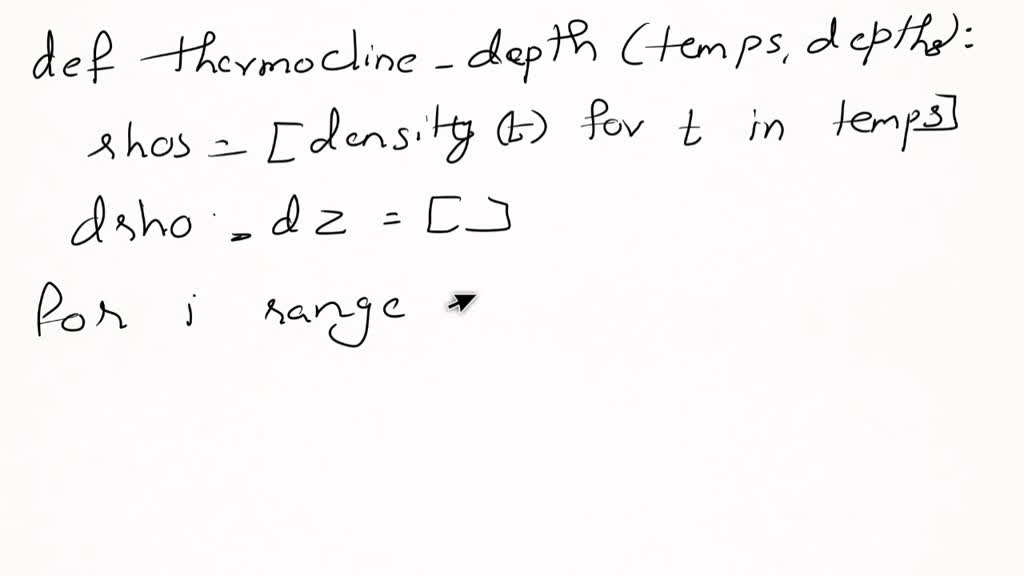 def thermocline_depth (temps, depths):
rhos = [density (t) for t in temps]
drho_dz = []
for i range